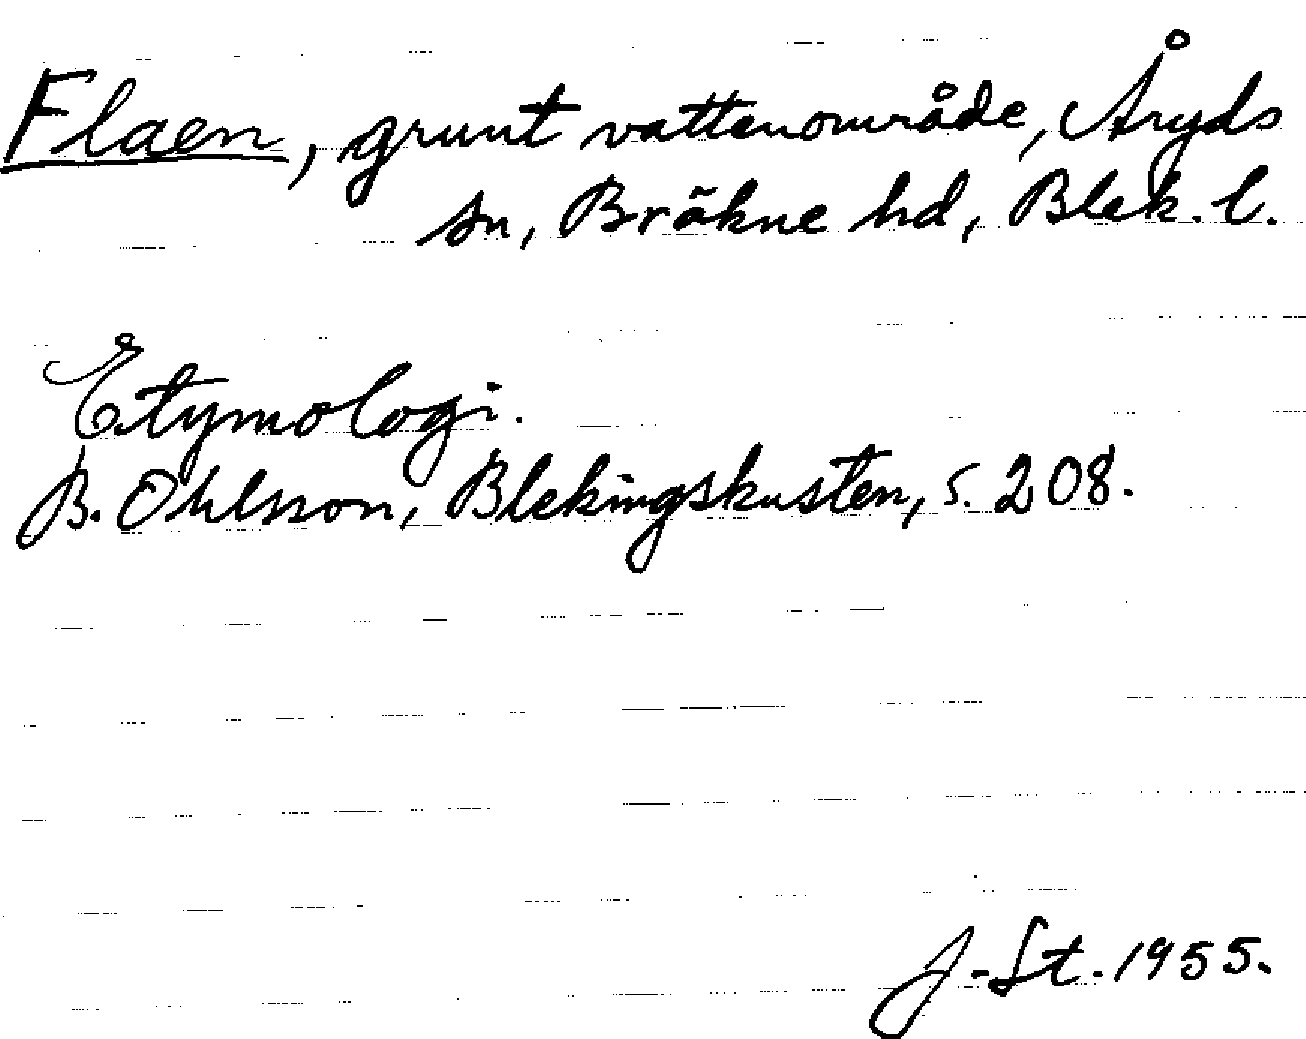 Flaen, grunt vattenområde, Åryds
sn, Bräkne hd, Blek. l.
Etymologi.
B. Ohlsson, Blekingskusten, s. 208.
J-St. 1955.